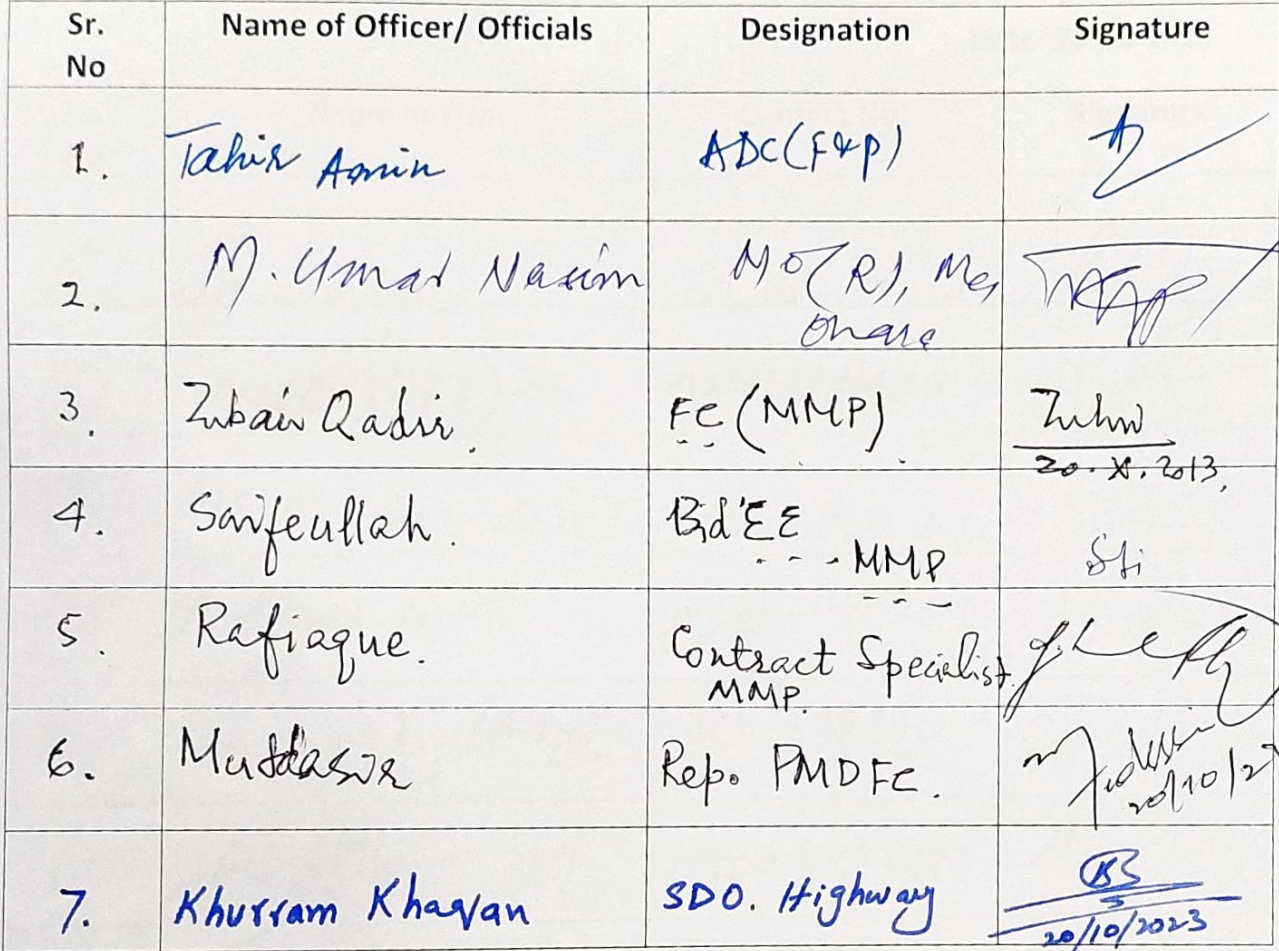 Sr. No Name of Officer/ Officials Designation Signature
1. Tahir Amin ADC(F&P)
2. M. Umar Nasim MO(R), Mc,
3. Zubair Qadir. FC (MMP)
20.X.2013,
4. Saifeullah. Bid'EE
MMP
5. Rafiaque. Contract Specialist.
MMP.
6. Muddasir Rep. PMDFC.
20/10/2
7. Khurram Khaqan SDO. Highway
20/10/2023